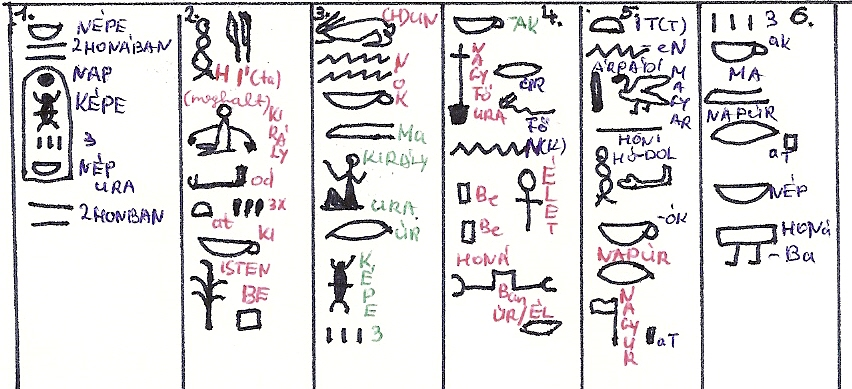 1.
NÉPE
2HONÁBAN
NAP
KÉPE
3
NÉP
URA
2HONBAN
2.
HI'(ta)
(meghalt)
KI
RÁ
LY
od
3X
at
KI
ISTEN
BE
3.
N
O
K
Ma
KIRÁLY
URA
ÚR
KÉPE
3
4.
AK
NAGY
FŐ
URA
FŐ
N(K)
ÉLET
Be
Be
HONÁ
Ban
ÚR/ÉL
5.
IT(T)
eN
ÁRPÁDI
MAGYAR
HONI
HÓ-DOL
-ÓK
NAPÚR
NAGYÚR
aT
6.
3
ak
MA
NAPÚR
aT
NÉP
HONÁ
-Ba